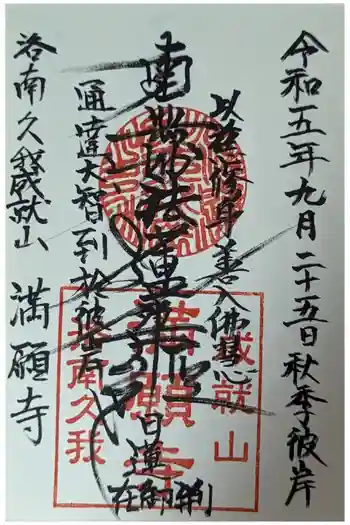 令和五年九月二十五日 秋季彼岸
以法修身 善入佛慧心
南無妙法蓮華経 日蓮
在御判
通達大智 到於彼岸
洛南久我成就山 満願寺
成就山
満願寺
洛南久我